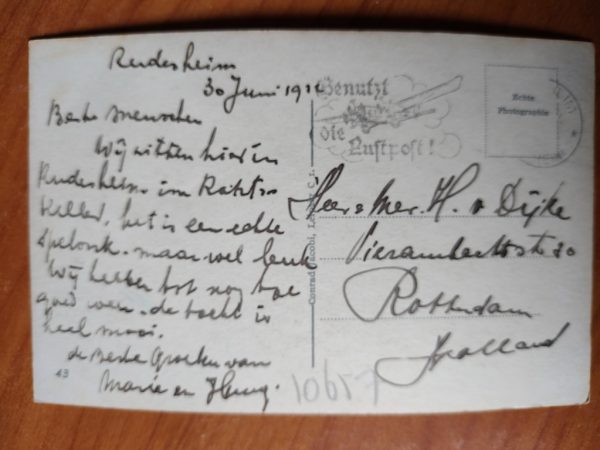 Rudesheim
30 Juni
Beste menschen
Wij zitten hier in
Rudesheim im Rats
keller, het is een echte
spelonk. maar wel leuk
Wij hebben tot nog toe
goed weer. de tocht is
heel mooi.
de beste Groeten van
Marie en
43
10657
Conrad Jacobi,
Benutzt
die
Luftpost!
Echte
Photographie
Heer & Mev. H. v Dijke
30
Rotterdam
Holland